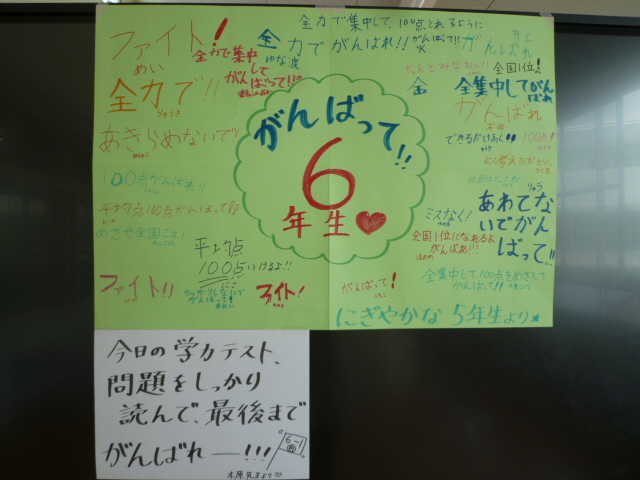 ファイト!
めい
全力で集中
して
がんばって!!
全力で!!
りゅうき
あきらめないで!!
全力でがんばれ!!
ゆな
全力で集中して、100点とれるように
がんばって!!
がんばれ
井上
全国1位!
全集中してがん
ばれ
がんばれ
100点!
よく考えてください。
がんばって!!
6
年生♥
100点がんばれ!!
平均点100点がんばって!!!
めざせ全国こえ!
平均点
100点いけるよ!!
ファイト!!
うっかりしないで
がんばって!
ファイト!
がんばって!
ミスなく!
全国1位になれるよ
がんばれ!!
りゅう
あわてな
いでがん
ばって!!
全集中して、100点をめざして、
がんばって!!
にぎやかな 5年生より★
今日の学力テスト、
問題をしっかり
読んで、最後まで
がんばれー!!!
6-1
木原先生より♡